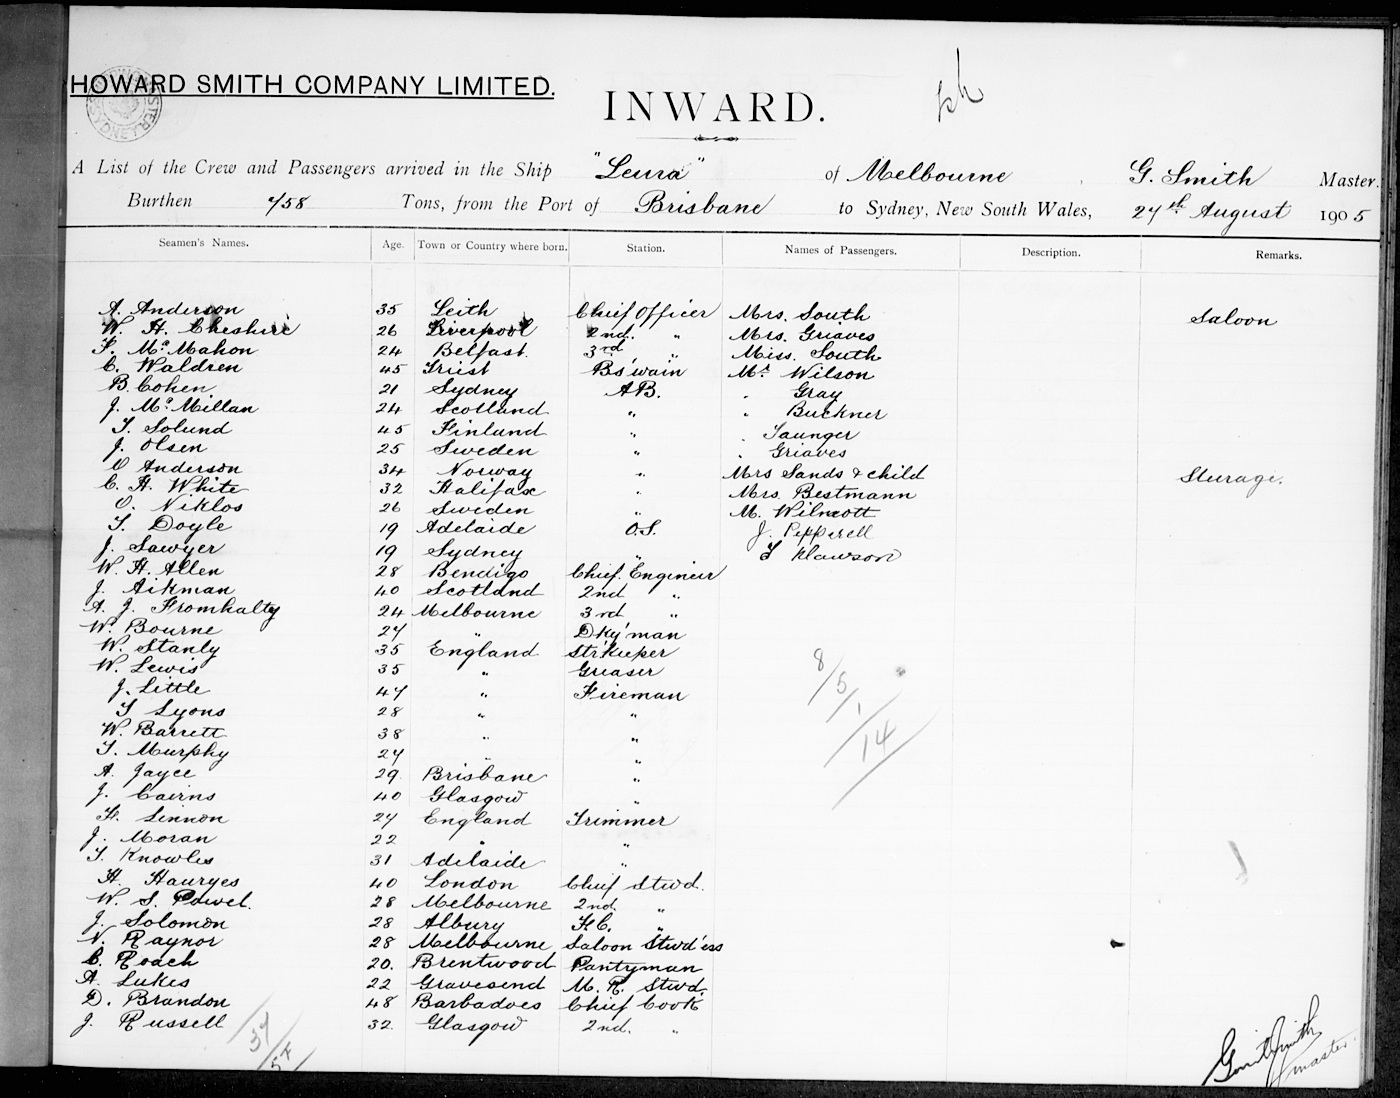 HOWARD SMITH COMPANY LIMITED.
INWARD.
A List of the Crew and Passengers arrived in the Ship "Leura" of Melbourne G. Smith Master.
Burthen 758 Tons, from the Port of Brisbane to Sydney, New South Wales, 27th August 1905
Seamen's Names. Age. Town or Country where born. Station. Names of Passengers. Description. Remarks.
A. Anderson 35 Leith Chief Officer Mrs. South Saloon
W. H. Cheshire 26 Liverpool 2nd. " Mrs. Griaves
F. McMahon 24 Belfast. 3rd " Miss. South
C. Waldren 45 Triest Bs'wain Mr. Wilson
B. Cohen 21 Sydney AB. " Gray
J. McMillan 24 Scotland " " Buckner
T. Solund 45 Finland " " Saunger
J. Olsen 25 Sweden " " Griaves
O Anderson 34 Norway " Mrs Sands & child Sturage.
C. H. White 32 Halifax " Mrs. Bestmann
O. Niklos 26 Sweden " M. Wilmott
T. Doyle 19 Adelaide O.S. J. Pepperell
J. Sawyer 19 Sydney " T Klawson
W. H. Allen 28 Bendigo Chief. Engineer
J. Aikman 40 Scotland 2nd "
A. J. Fromhalty 24 Melbourne 3rd "
W. Bourne 27 " Dky'man
W. Stanly 35 England Str'keeper
W. Lewis 35 " Greaser
J. Little 47 " Fireman
T Lyons 28 " "
W. Barrett 38 " "
T. Murphy 27 " "
A. Jayce 29. Brisbane "
J. Cairns 40 Glasgow "
H. Linnon 27 England Trimmer
J. Moran 22 " "
T. Knowles 31 Adelaide "
H. Hauryes 40 London Chief Stwd.
W. S. Powel. 28 Melbourne 2nd. "
J. Solomon 28 Albury F.C. "
N. Raynor 28 Melbourne Saloon Stwd'ess
C. Roach 20. Brentwood Pantyman
A. Lukes 22 Gravesend M. R. Stwd.
D. Brandon 48 Barbadoes Chief Cook
J. Russell 32. Glasgow 2nd. "
8/5/1/14
37/54
Smith
master